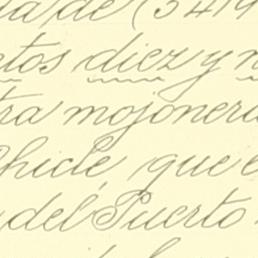 de (3419
ntos diez y n
tra mojonera
Chicle, que e
del Puerto